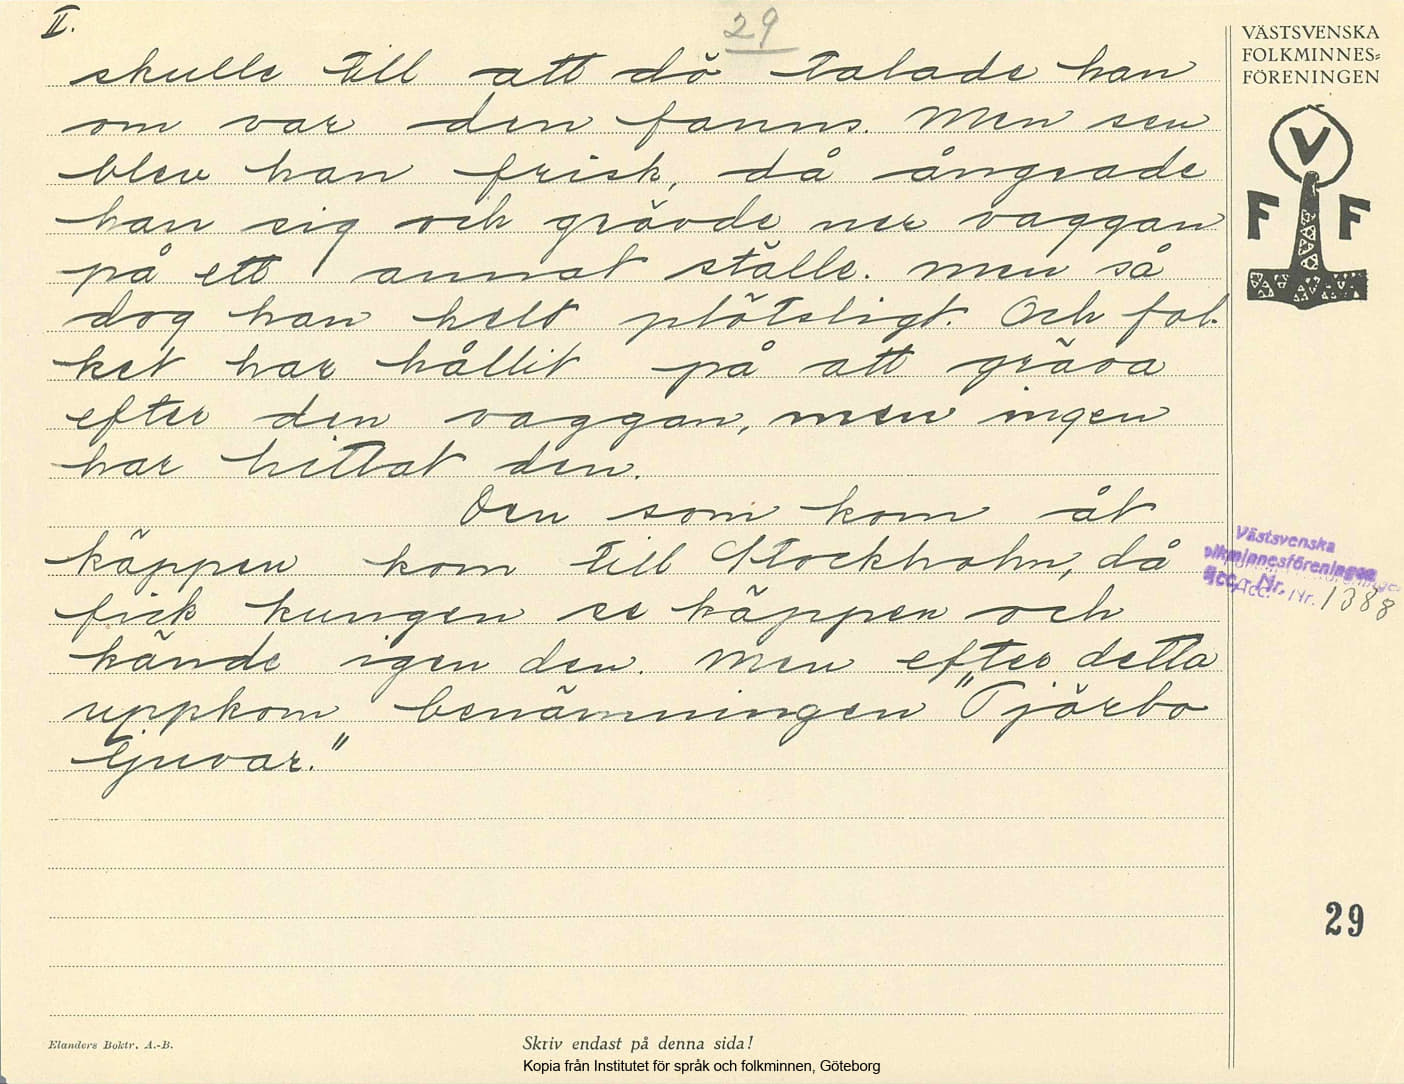 II.
29
VÄSTSVENSKA
FOLKMINNES-
FÖRENINGEN
V
F F
skulle till att dö talade han
om var den fanns. Men sen
blev han frisk, då ångrade
han sig och grävde ner vaggan
på ett annat ställe. men så
dog han helt plötsligt. Och fol-
ket har hållit på att gräva
efter den vaggan, men ingen
har hittat den.
Den som kom åt
käppen kom till Stockholm, då
fick kungen se käppen och
kände igen den. Men efter detta
uppkom benämningen "Tjärbo
tjuvar."
Västsvenska
olkminnesföreningen
Acc. Nr. 1388
29
Elanders Boktr. A.-B.
Skriv endast på denna sida!
Kopia från Institutet för språk och folkminnen, Göteborg